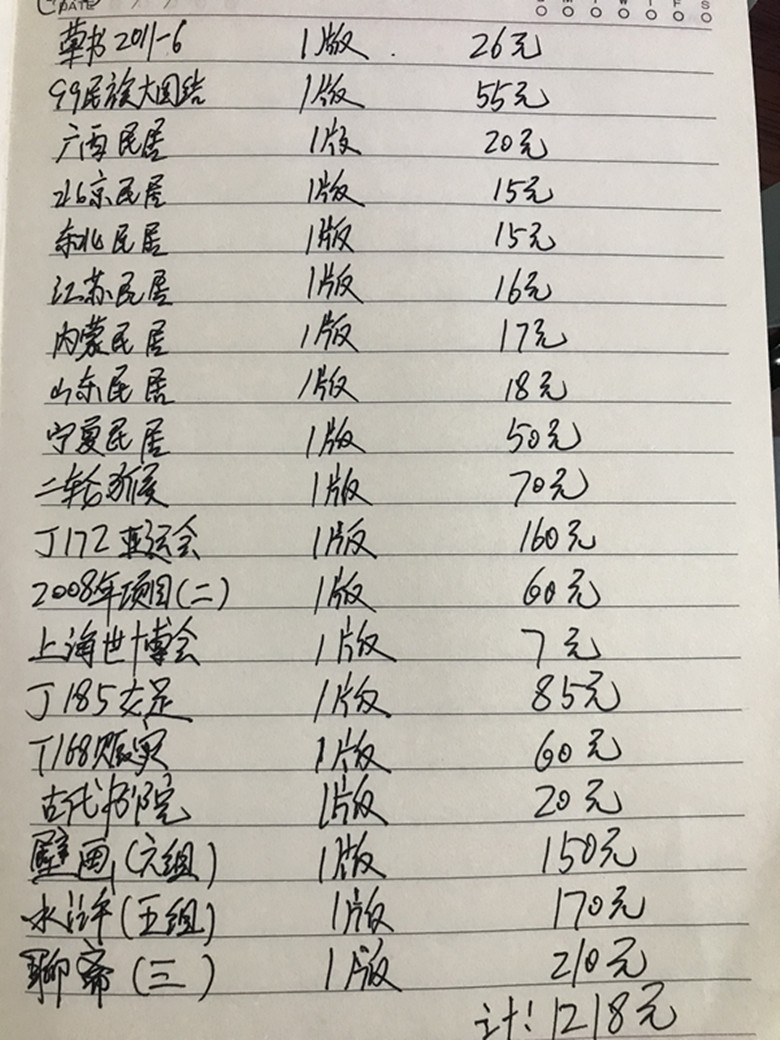 DATE
S M T W T F S
草书2011-6 1版. 26元
99民族大团结 1版 55元
广西民居 1版 20元
北京民居 1版 15元
东北民居 1版 15元
江苏民居 1版 16元
内蒙民居 1版 17元
山东民居 1版 18元
宁夏民居 1版 50元
二轮猴 1版 70元
J172亚运会 1版 160元
2008年项目(二) 1版 60元
上海世博会 1版 7元
J185女足 1版 85元
T168赈灾 1版 60元
古代书院 1版 20元
壁画(六组) 1版 150元
水浒(五组) 1版 170元
聊斋(三) 1版 210元
计:1218元